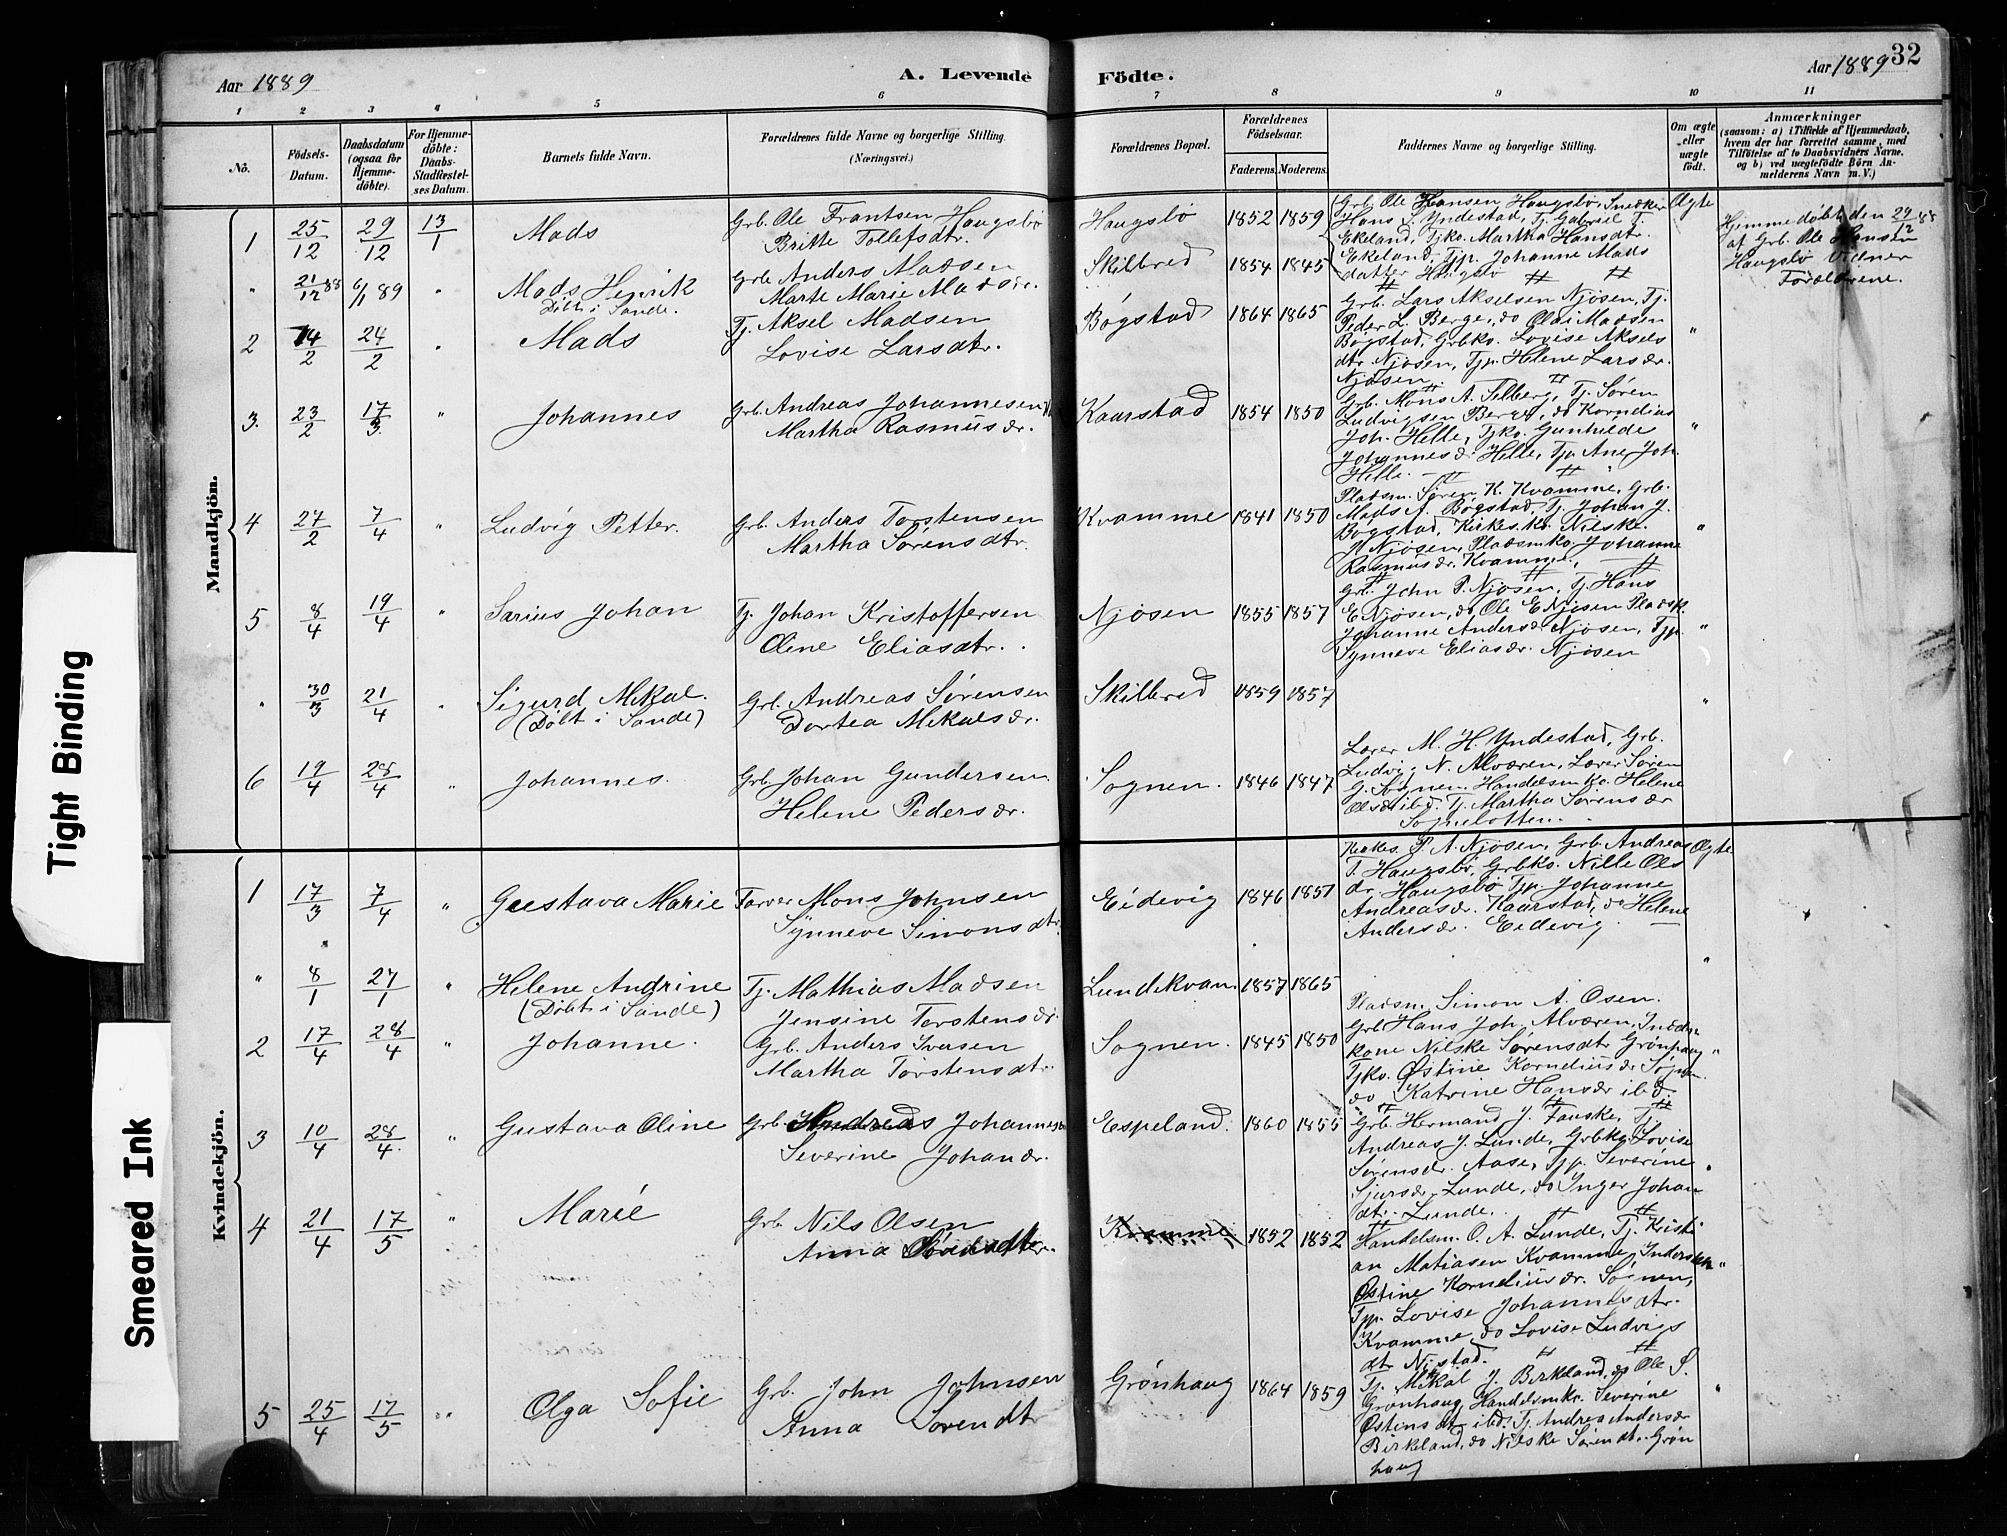 Aar 1889
A. Levende
Födte.
Aar 1889
32
1 2 3 4 5 6 7 8 9 10 11
No.
Födsels-
Datum.
Daabsdatum
(ogsaa for
Hjemme-
döbte).
For Hjemme-
döbte:
Daabs-
Stadfæstel-
ses Datum.
Barnets fulde Navn.
Forældrenes fulde Navne og borgerlige Stilling.
(Næringsvei.)
Forældrenes Bopæl.
Forældrenes
Födselsaar.
Faderens. Moderens.
Faddernes Navne og borgerlige Stilling.
Om ægte
eller
uægte
födt.
Anmærkninger
(saasom: a) i Tilfælde af Hjemmedaab,
hvem der har forrettet samme, med
Tilföielse af to Daabsvidners Navne,
og b) ved uægtefödte Börn An-
melderens Navn m. V.)
Mandkjön.
1 25/12 29/12 13/1 Mads
Grb. Ole Frantsen Haugsbø
Britte Tollefsdtr.
Haugsbø 1852 1859
Grb. Ole Hansen Haugsbø, Snedker
Hans P. Yndestad, Tj. Gabriel T.
Ekeland, Tjko. Martha Hansdtr.
Ekeland, Tjp. Johanne Mads
datter Haugsbø
Ægte
Hjemmedøbt den 29/12 88
af Grb. Ole Hansen
Haugsbø Vidner
Forældrene.
" 21/12 88 6/1 89 " Mads Henrik
Døbt i Sande.
Grb. Anders Madsen
Marte Marie Madsdr.
Skilbred 1854 1845
2 14/2 24/2 " Mads
Tj. Aksel Madsen
Lovise Larsdtr.
Bøgstad 1864 1865
Grb. Lars Akselsen Njøsen, Tj.
Peder L. Berge, do Olai Madsen
Bøgstad, Grbko. Lovise Aksels
dtr. Njøsen, Tjp. Helene Larsdr.
Njøsen
"
3. 23/2 17/3 " Johannes
Grb. Andreas Johannesen
Martha Rasmusdr.
Kaarstad 1854 1850
Grb. Mons A. Felberg, Tj. Søren
Ludvigsen Berge, do Kornelius
Joh. Helle, Tjko. Gunhilde
Johannesdr. Helle, Tjp. Ane Joh.
Helle.
"
4 27/2 7/4 " Ludvig Petter.
Grb. Anders Torstensen
Martha Sørensdtr.
Kvamme 1841 1850
Pladsm. Søren K. Kvamme, Grb.
Mads A. Bøgstad, Tj. Johan J.
Bogstad, Kirkes.ko. Nilske
Njøsen, Pladsmko. Johanne
Rasmusdr. Kvamme,
"
5 8/4 19/4 " Sarius Johan
Tj. Johan Kristoffersen
Oline Eliasdtr.
Njøsen 1855 1857
Grb. John P. Njøsen, Tj. Hans
E. Njøsen, do Ole E Njøsen Pladsk.
Johanne Andersd. Njøsen, Tjp.
Synneve Eliasdr. Njøsen
"
" 30/3 21/4 " Sigurd Mikal.
(Døbt i Sande)
Grb. Andreas Sørensen
Dortea Mikalsdr.
Skilbred 1859 1857
"
6 19/4 28/4 " Johannes.
Grb. Johan Gundersen.
Helene Pedersdr.
Sognen. 1846 1847
Lærer M. H. Yndestad, Grb.
Ludvig N. Alværen, Lærer Søren
G. Sognen. Handelsm.ko. Helene
Olsdr ibd. Tj. Martha Sørensdr
Sognelotten.
Kvindekjön.
1 17/3 7/4 " Gustava Marie
Farver Mons Johnsen
Synneve Simonsdtr.
Eidevig 1846 1857
Kirkes. P. A. Njøsen, Grb. Andreas
T. Haugsbø, Grbko. Nille Ols
dr. Haugsbø Tjp. Johanne
Andreasdr. Kaarstad, do Helene
Andersdr. Eidevig
Ægte
" 8/1 27/1 " Helene Andrine
(Døbt i Sande)
Tj. Mathias Madsen
Jensine Torstensdr.
Lundekvam 1857 1865
"
2 17/4 28/4 " Johanne.
Grb. Anders Iversen
Martha Torstensdtr.
Sognen. 1845 1850
Pladsm. Simon A. Osen.
Grb. Hans Joh. Alværen, Inder
kone Nilske Sørensdtr Grønhaug
Tjko. Østine Korneliusdr Sogn.
do Katrine Hansdr ibd.
"
3 10/4 28/4 " Gustava Oline
Grb. Andreas Johannesen
Severine Johandr.
Espeland. 1860 1855
Grb. Hermand J. Fauske, Tj.
Andreas J. Lunde, Grbko. Lovise
Sørensdr. Aase, Tjp. Severine
Sjursdr. Lunde, do Inger Johan
dtr. Lunde.
"
4 21/4 17/5 " Marie
Grb. Nils Olsen
Anna
Kvamme 1852 1852
Handelsm. O. A. Lunde, Tj. Kristi
an Matiasen Kvamme,
Østine Korneliusdr. Sognen,
Tjp. Lovise Johannesdtr.
Kvamme, do Lovise Ludvigs
dtr. Nistad.
"
5 25/4 17/5 " Olga Sofie
Grb. John Johnsen
Anna Sørendtr
Grønhaug 1864 1859
Tj. Mikal J. Birkland, do Ole S.
Grønhaug Handelsmko. Severine
Østensdtr ibd. Tj. Andrea Andersdr
Birkeland, do Nilske Sørendtr. Grøn
haug
"
Tight Binding
Smeared Ink